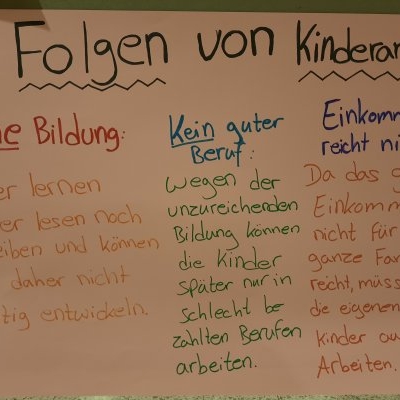 Folgen von Kinderar
ne Bildung:
er lernen
er lesen noch
eiben und können
daher nicht
tig entwickeln.
Kein guter
Beruf:
Wegen der
unzureichenden
Bildung können
die Kinder
später nur in
schlecht be
zahlten Berufen
arbeiten.
Einkomm
reicht ni
Da das g
Einkomm
nicht für
ganze Fam
reicht, müss
die eigenen
Kinder au
Arbeiten.